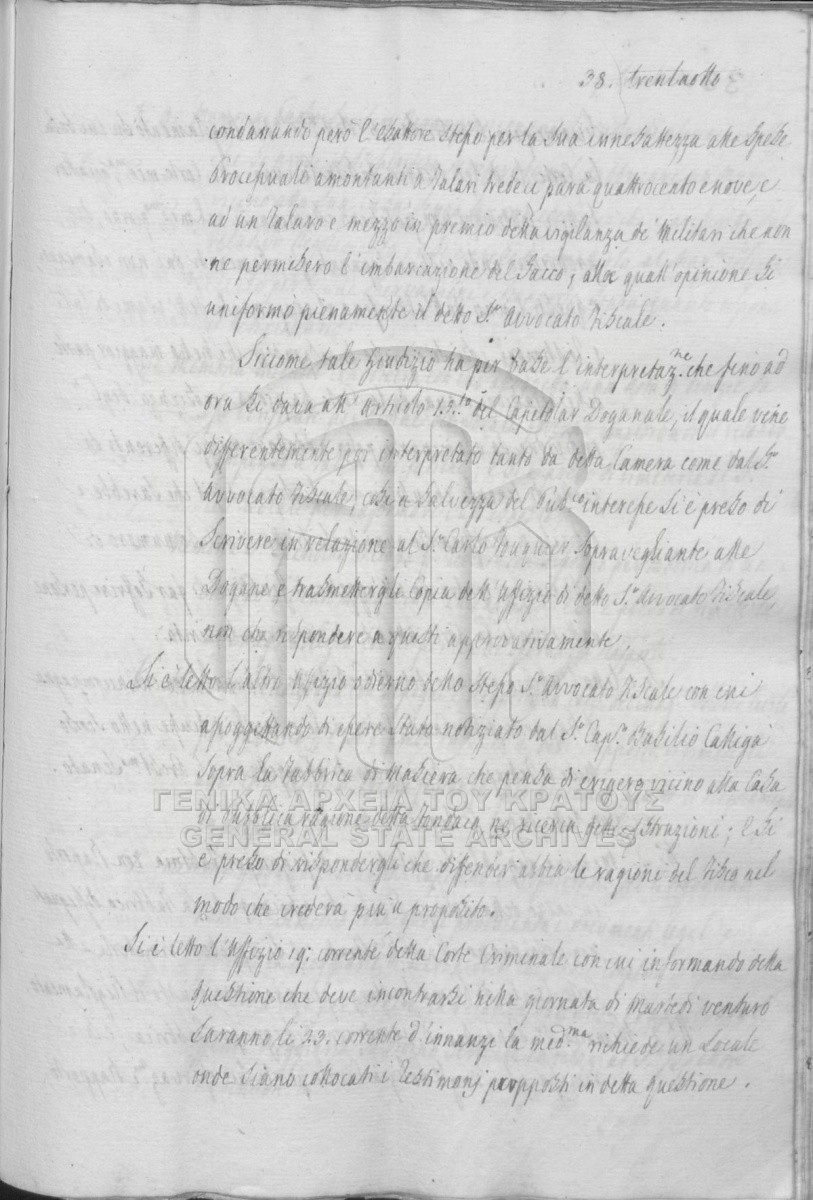 38. trentaotto
condanando però l'esattore stesso per la sua innesattezza alle spese
Processuali amontanti a Talari tredeci parà quattrocento e nove, e
ad un Talaro e mezzo in premio della vigilanza de' Militari che non
ne permisero l'imbarcazione del Sacco; alla quall'opinione si
uniformò pienamente il detto S.r Avvocato Fiscale.
Siccome tale giudizio ha per base l'interpretaz.ne che fino ad
ora si dava all'articolo 13.to del Capitolar Doganale, il quale viene
differentemente poi interpretato tanto da detta Camera come dal S.r
Avvocato Fiscale, così a salvezza del Pub.co interesse si è preso di
scrivere in relazione al S.r Carlo sopravegliante alle
Dogane e trasmettergli Copia dell'Uffizio di detto S.r Avvocato Fiscale,
non che rispondere a questi approvativamente.
Si è letto l'altro Uffizio odierno dello stesso S.r Avvocato Fiscale con cui
apoggettando di essere stato notiziato dal S.r Cap.n Basilio Calligà
sopra la Fabbrica di Masiera che pensa di erigere vicino alla Casa
di Pubblica ragione detta ne ricerca delle Istruzioni; e si
è preso di rispondergli che difender abbia le ragioni del Fisco nel
modo che crederà più a proposito.
Si è letto l'Uffizio 19: corrente della Corte Criminale con cui informando della
questione che deve incontrarsi nella giornata di Martedì venturo
saranno li 23. corrente d'innanzi la med.ma richiede un Locale
onde siano collocati i Testimonj propposti in detta questione.
ΓΕΝΙΚΑ ΑΡΧΕΙΑ ΤΟΥ ΚΡΑΤΟΥΣ
GENERAL STATE ARCHIVES